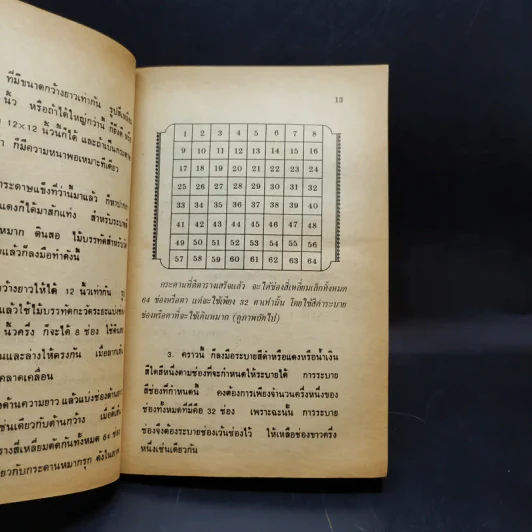 ที่มีขนาดกว้างยาวเท่ากัน
นิ้ว หรือถ้าได้ใหญ่กว่านี้ ก็ยิ่งดี
12×12 นิ้วนี้ก็ได้
ก็มีความหนาพอเหมาะทีเดียว
กระดาษแข็งที่ว่านี้มาแล้ว
แดงก็ได้มาสักแท่ง สำหรับระบายสี
หมาก ดินสอ ไม้บรรทัดสำหรับ
แล้วก็ลงมือทำดังนี้
กว้างยาวให้ได้ 12 นิ้วเท่ากัน
แล้วใช้ไม้บรรทัดกะวัดระยะแบ่ง
นิ้วครึ่ง ก็จะได้ 8 ช่อง
และล่างให้ตรงกัน
คลาดเคลื่อน
ด้านความยาว แล้วแบ่งช่องด้าน
เช่นเดียวกับด้านกว้าง
รางสี่เหลี่ยมตัดกันทั้งหมด 64 ช่อง
เดียวกับกระดานหมากรุก ดังในภาพ
13
1 2 3 4 5 6 7 8
9 10 11 12 13 14 15 16
17 18 19 20 21 22 23 24
25 26 27 28 29 30 31 32
33 34 35 36 37 38 39 40
41 42 43 44 45 46 47 48
49 50 51 52 53 54 55 56
57 58 59 60 61 62 63 64
กระดานที่ตีตารางเสร็จแล้ว จะได้ช่องสี่เหลี่ยมเล็กทั้งหมด
64 ช่องหรือตา แต่จะใช้เพียง 32 ตาเท่านั้น โดยใช้สีดำระบาย
ช่องหรือตาที่จะใช้เดินหมาก (ดูภาพถัดไป)
3. คราวนี้ ก็ลงมือระบายสีดำหรือแดงหรือน้ำเงิน
สีใดสีหนึ่งตามช่องที่จะกำหนดให้ระบายได้ การระบาย
สีช่องที่กำหนดนี้ คงต้องการเพียงจำนวนครึ่งหนึ่งของ
ช่องทั้งหมดที่มีคือ 32 ช่อง เพราะฉะนั้น การระบาย
ช่องจึงต้องระบายช่องเว้นช่องไว้ ให้เหลือช่องขาวครึ่ง
หนึ่งเช่นเดียวกัน